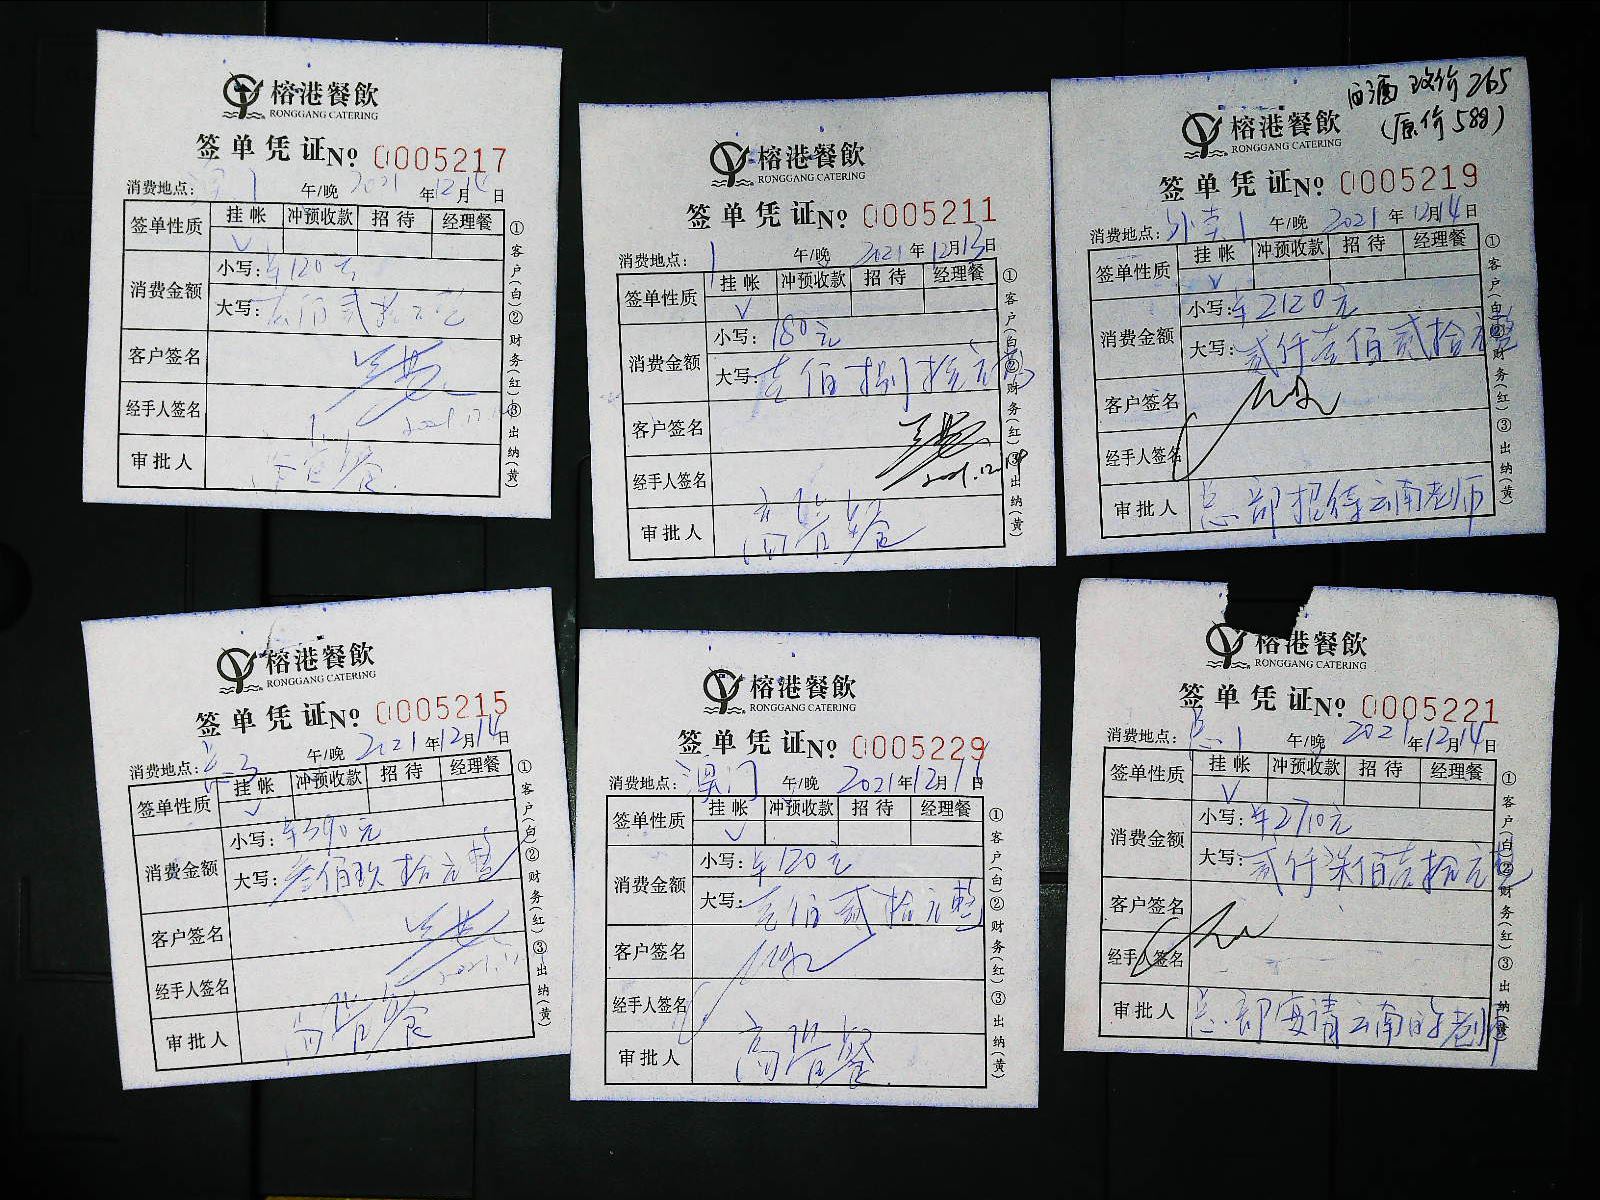 榕港餐飲
RONGGANG CATERING
签单凭证No 0005217
消费地点: 午/晚 2021年12月14日
签单性质 挂帐 冲预收款 招待 经理餐
√
消费金额 小写:¥120元
大写:壹佰贰拾元整
客户签名
经手人签名
2021.12
审批人
①客户(白)②财务(红)③出纳(黄)
榕港餐飲
RONGGANG CATERING
签单凭证No 0005211
消费地点: 1 午/晚 2021年12月13日
签单性质 挂帐 冲预收款 招待 经理餐
√
消费金额 小写:180元
大写:壹佰捌拾元整
客户签名
经手人签名
2021.12
审批人
①客户(白)②财务(红)③出纳(黄)
白酒改价265
(原价588)
榕港餐飲
RONGGANG CATERING
签单凭证No 0005219
消费地点: 午/晚 2021年12月14日
签单性质 挂帐 冲预收款 招待 经理餐
√
消费金额 小写:¥2120元
大写:贰仟壹佰贰拾元整
客户签名
经手人签名
审批人 总部招待云南老师
①客户(白)②财务(红)③出纳(黄)
榕港餐飲
RONGGANG CATERING
签单凭证No 0005215
消费地点: 午/晚 2021年12月14日
签单性质 挂帐 冲预收款 招待 经理餐
√
消费金额 小写:¥390元
大写:叁佰玖拾元整
客户签名
经手人签名
审批人
①客户(白)②财务(红)③出纳(黄)
榕港餐飲
RONGGANG CATERING
签单凭证No 0005229
消费地点: 澳门 午/晚 2021年12月11日
签单性质 挂帐 冲预收款 招待 经理餐
√
消费金额 小写:¥120元
大写:壹佰贰拾元整
客户签名
经手人签名
审批人
①客户(白)②财务(红)③出纳(黄)
榕港餐飲
RONGGANG CATERING
签单凭证No 0005221
消费地点: 总1 午/晚 2021年12月14日
签单性质 挂帐 冲预收款 招待 经理餐
√
消费金额 小写:¥2710元
大写:贰仟柒佰壹拾元整
客户签名
经手人签名
审批人 总部宴请云南的老师
①客户(白)②财务(红)③出纳(黄)